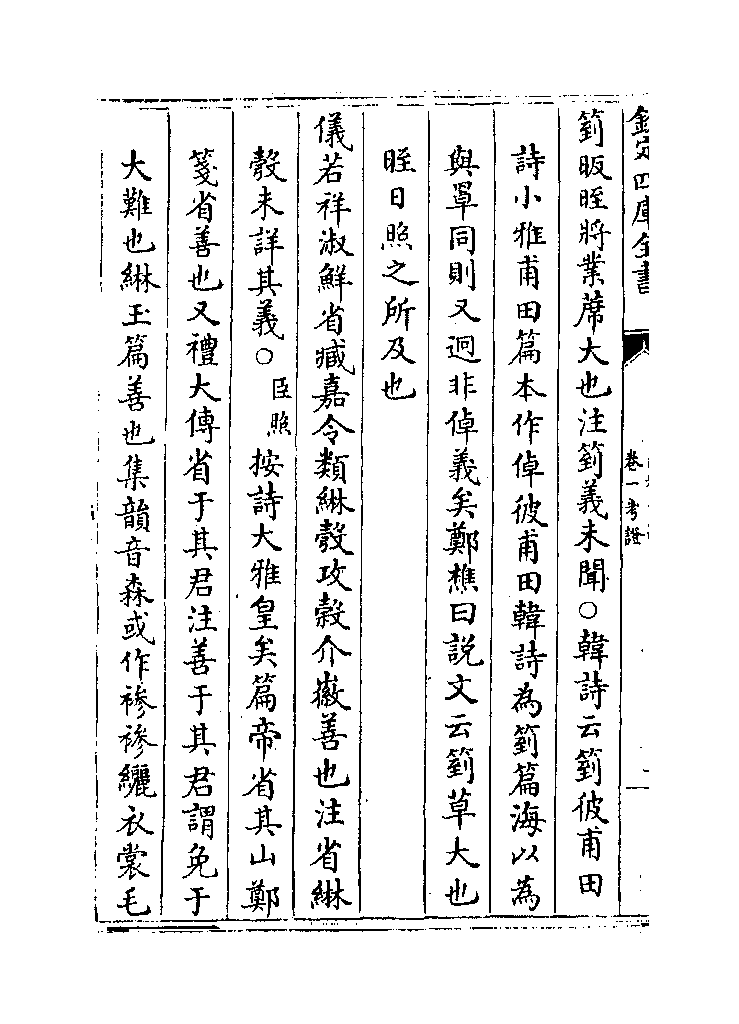 欽定四庫全書
卷一考證
箌昄晊將業蓆大也注箌義未聞○韓詩云箌彼甫田
詩小雅甫田篇本作倬彼甫田韓詩為箌篇海以為
與罩同則又迥非倬義矣鄭樵曰説文云箌草大也
晊日照之所及也
儀若祥淑鮮省臧嘉令類綝彀攻穀介徽善也注省綝
彀未詳其義○臣照按詩大雅皇矣篇帝省其山鄭
箋省善也又禮大傳省于其君注善于其君謂免于
大難也綝玉篇善也集韻音森或作襂襂纚衣裳毛